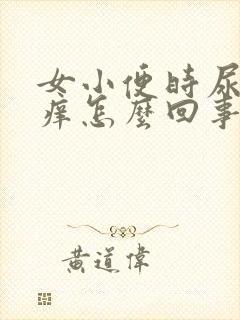 女小便時尿
痒怎麼回事
黃道偉